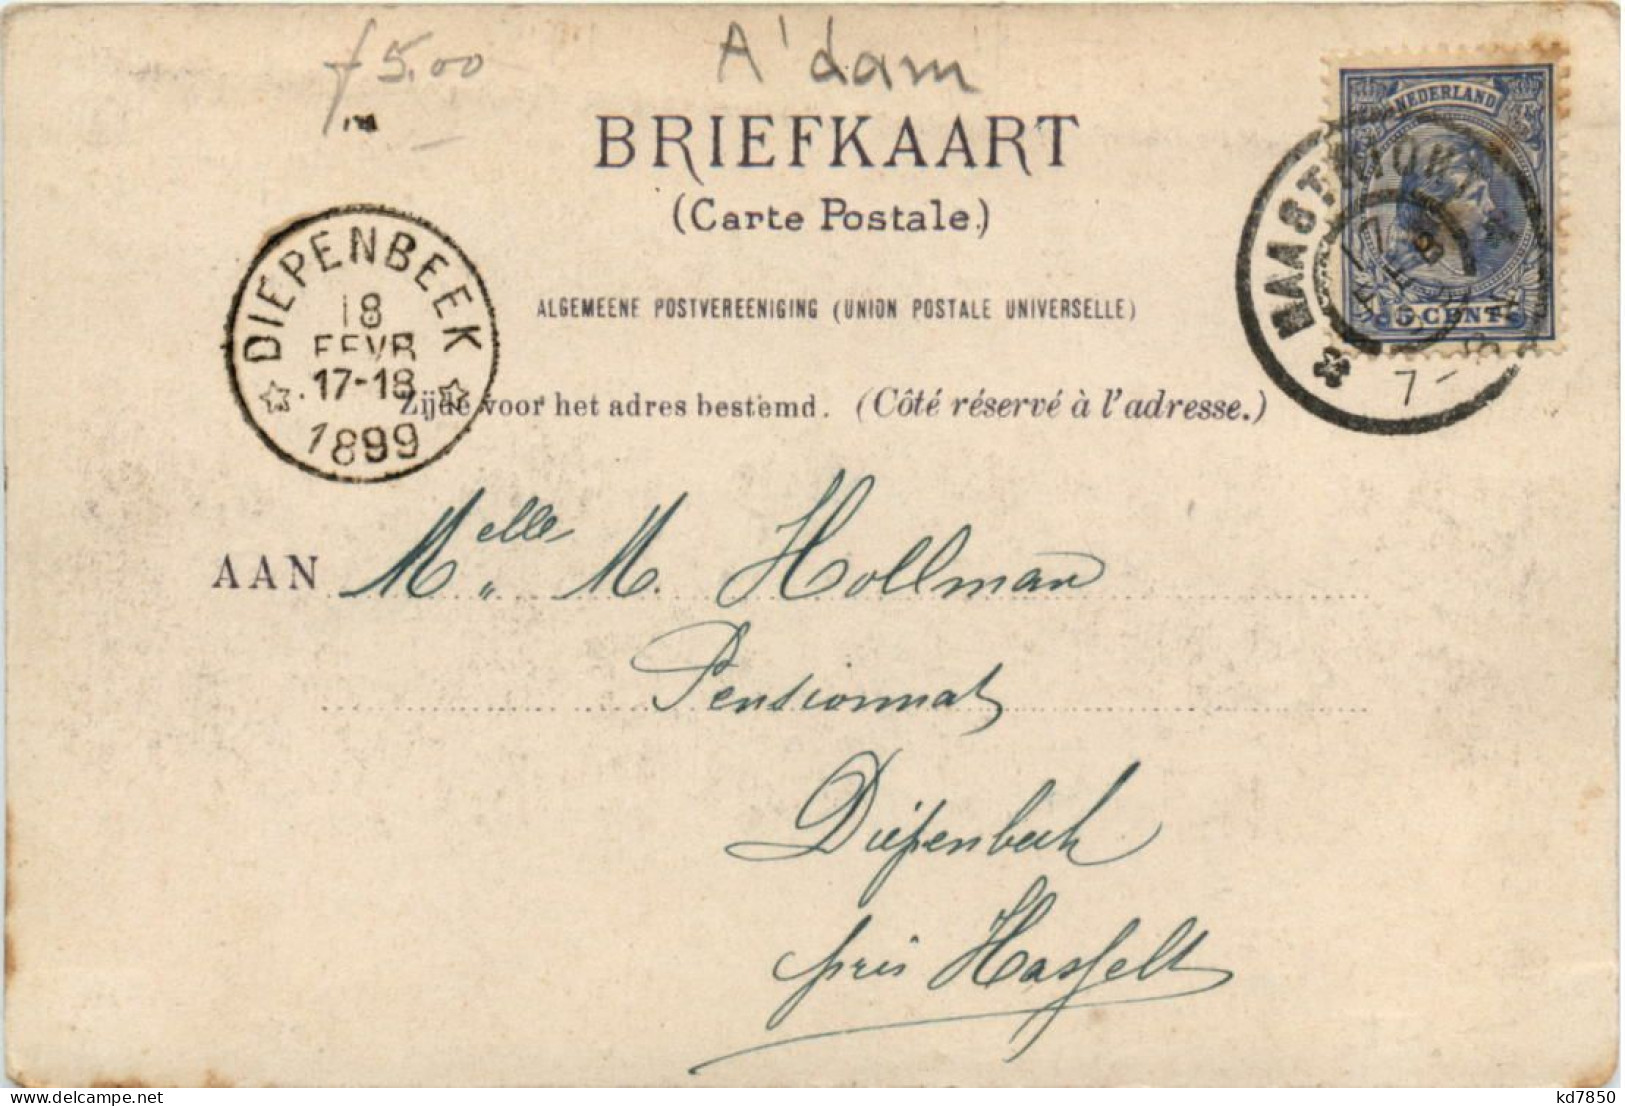 f 5.00
A'dam
BRIEFKAART
(Carte Postale.)
NEDERLAND
5 CENT
MAASTRICHT
7-8
DIEPENBEEK
18
FEVR
17-18
1899
ALGEMEENE POSTVEREENIGING (UNION POSTALE UNIVERSELLE)
Zijde voor het adres bestemd. (Côté réservé à l'adresse.)
AAN Melle M. Hollman
Pensionnat
Diepenbeek
près Hasselt
kd7850